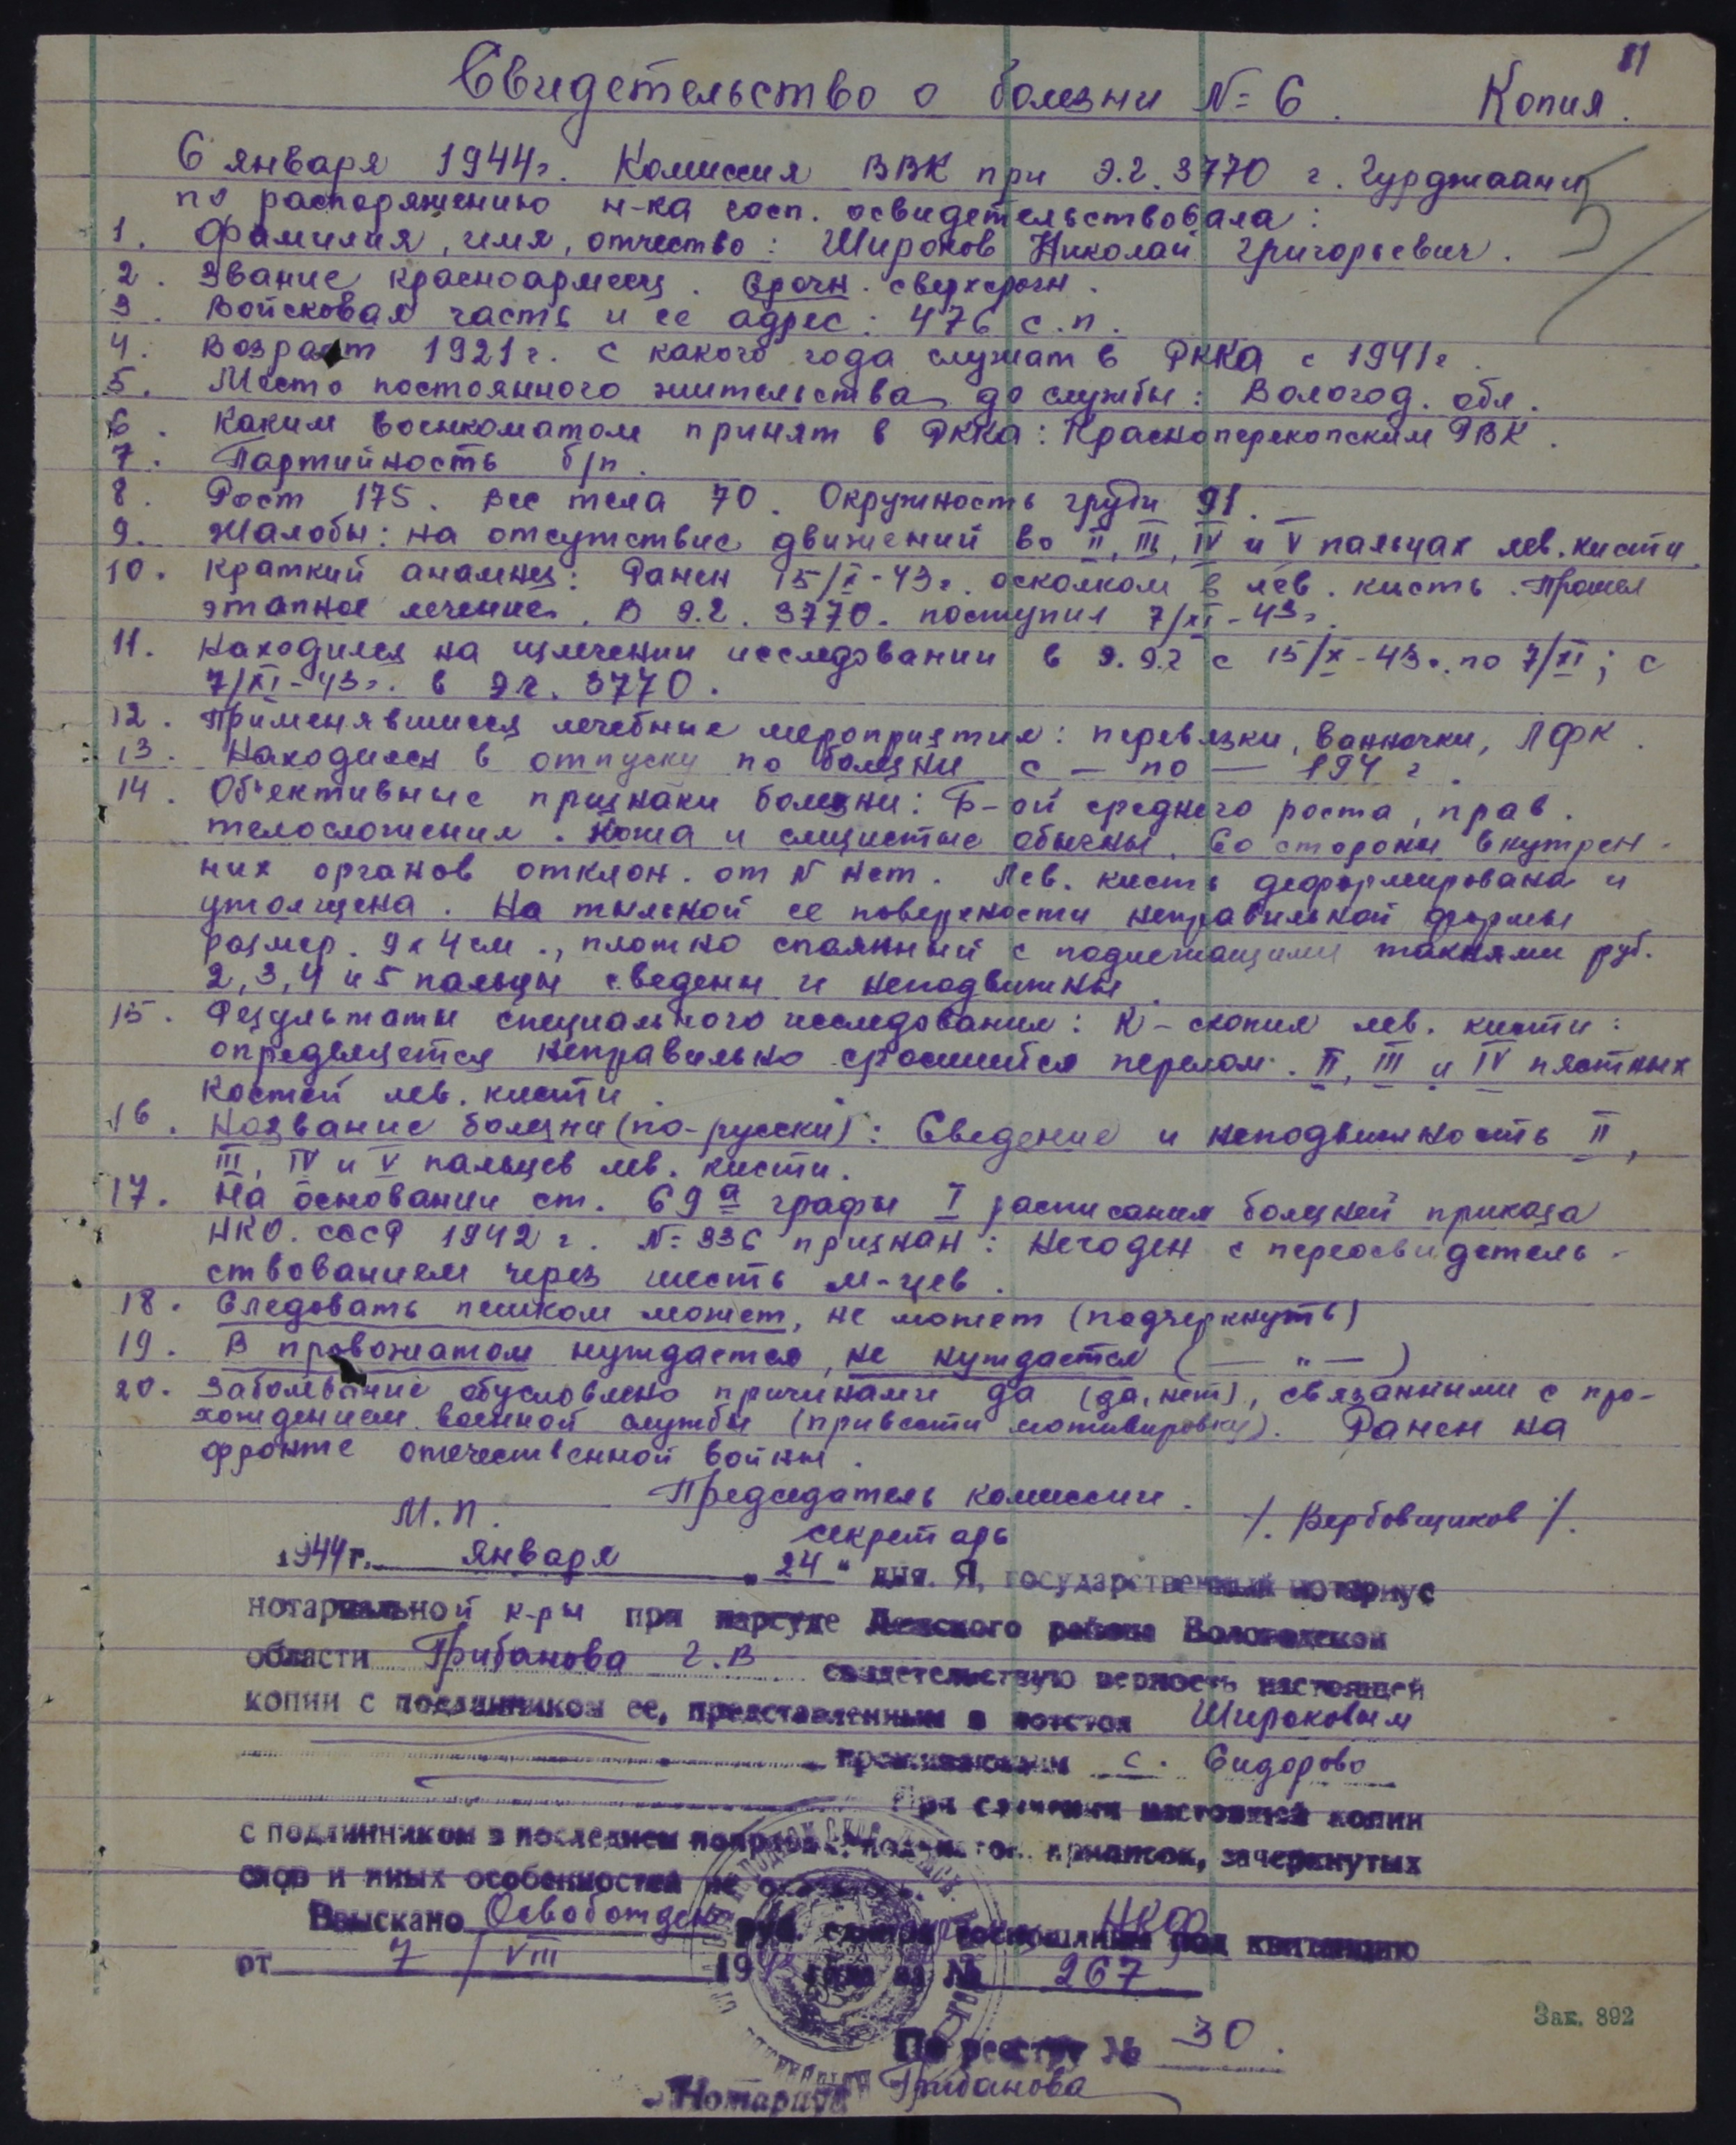 81
Свидетельство о болезни №= 6. Копия.
6 января 1944г. Комиссия ВВК при Э.Г. 3770 г. Гурджаани
по распоряжению н-ка госп. освидетельствовала:
1. Фамилия, имя, отчество: Широков Николай Григорьевич.
2. Звание красноармеец. Срочн. сверхсрочн.
3. Войсковая часть и ее адрес: 476 с.п.
4. Возраст 1921г. с какого года служат в РККА с 1941г.
5. Место постоянного жительства до службы: Волог​од. обл.
6. Каким военкоматом принят в РККА: Красноперекопским РВК.
7. Партийность б/п.
8. Рост 175. Вес тела 70. Окружность груди 91.
9. Жалобы: на отсутствие движений во II, III, IV и V пальцах лев. кисти.
10. Краткий анамнез: Ранен 15/X-43г. осколком в лев. кисть. Прошел
этапное лечение. В Э.Г. 3770. поступил 7/XI-43г.
11. Находился на излечении исследовании в Э.Г. с 15/X-43г. по 7/XI; с
7/XI-43г. в Э.Г. 3770.
12. Применявшиеся лечебные мероприятия: перевязки, ванночки, ЛФК.
13. Находился в отпуску по болезни с — по — 194 г.
14. Об'ективные признаки болезни: Б-ой среднего роста, прав.
телосложения. Кожа и слизистые обычны. Со стороны внутрен-
них органов отклон. от N нет. Лев. кисть деформирована и
утолщена. На тыльной ее поверхности неправильной формы
размер. 9х4см., плотно спаянный с подлежащими такнями руб.
2, 3, 4 и 5 пальцы сведены и неподвижны.
15. Результаты специального исследования: R-скопия лев. кисти:
определяется неправильно сросшийся перелом. II, III и IV пястных
костей лев. кисти.
16. Название болезни (по-русски): Сведение и неподвижность II,
III, IV и V пальцев лев. кисти.
17. На основании ст. 69а графы I расписания болезней приказа
НКО. СССР 1942г. №= 336 признан: Негоден с переосвидетель-
ствованием через шесть м-цев.
18. Следовать пешком может, не может (подчеркнуть)
19. В провожатом нуждается, не нуждается (— " —)
20. Заболевание обусловлено причинами да (да, нет), связанными с про-
хождением военной службы (привести мотивировку). Ранен на
фронте отечественной войны.
Председатель комиссии.
М.П. секретарь /. Вербовщиков /.
1944г. января "24" дня. Я, государственный нотариус
нотариальной к-ры при нарсуде района Вологодской
области Грибанова Г.В свидетельствую верность настоящей
копии с подлинником ее, представленным в Широковым
проживающим с. Сидорово
При сличении настоящей копии
с подлинником в последнем приписок, зачеркнутых
слов и иных особенностей не
Взыскано Освобожден руб. НКФ под квитанцию
от 7/VIII 19 за № 267
По реестру № 30.
Нотариус Грибанова
Зак. 892